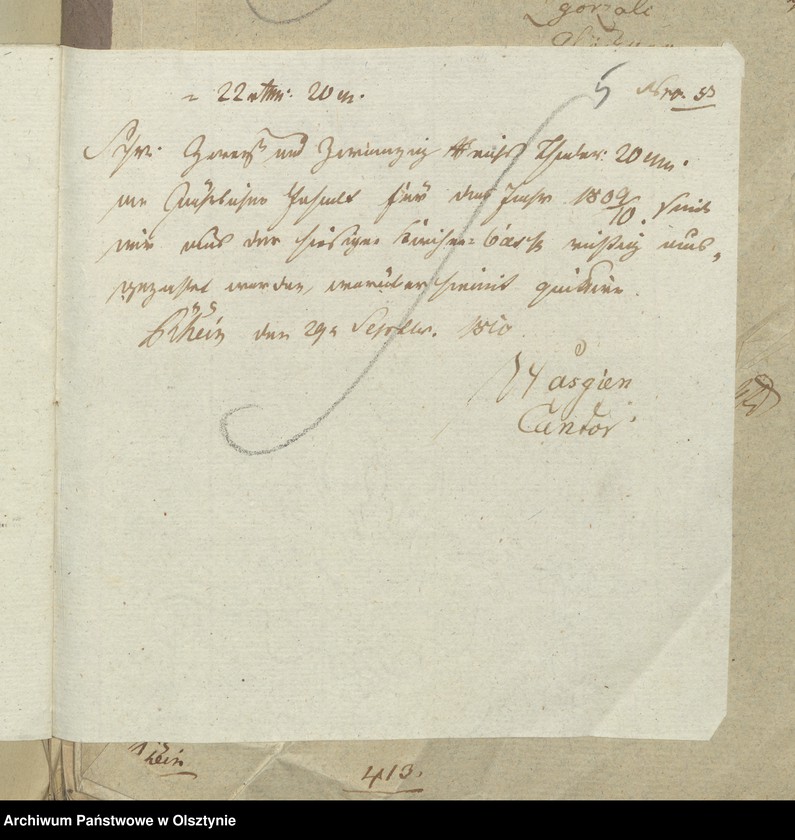 gorzali
= 22 rthlr: 20 gr.
Nro. 53
Zwey und Zwanzig Reichs Thaler: 20 gr.
an Jährlichen Gehalt für das Jahr 1809/10. sind
mir aus der hiesigen Kirchen=Casse richtig aus=
gezahlet worden, worüber hiemit quittire.
Rhein den 29n Septbr. 1810.
Masgien
Cantor
Rhein
413.
Archiwum Państwowe w Olsztynie